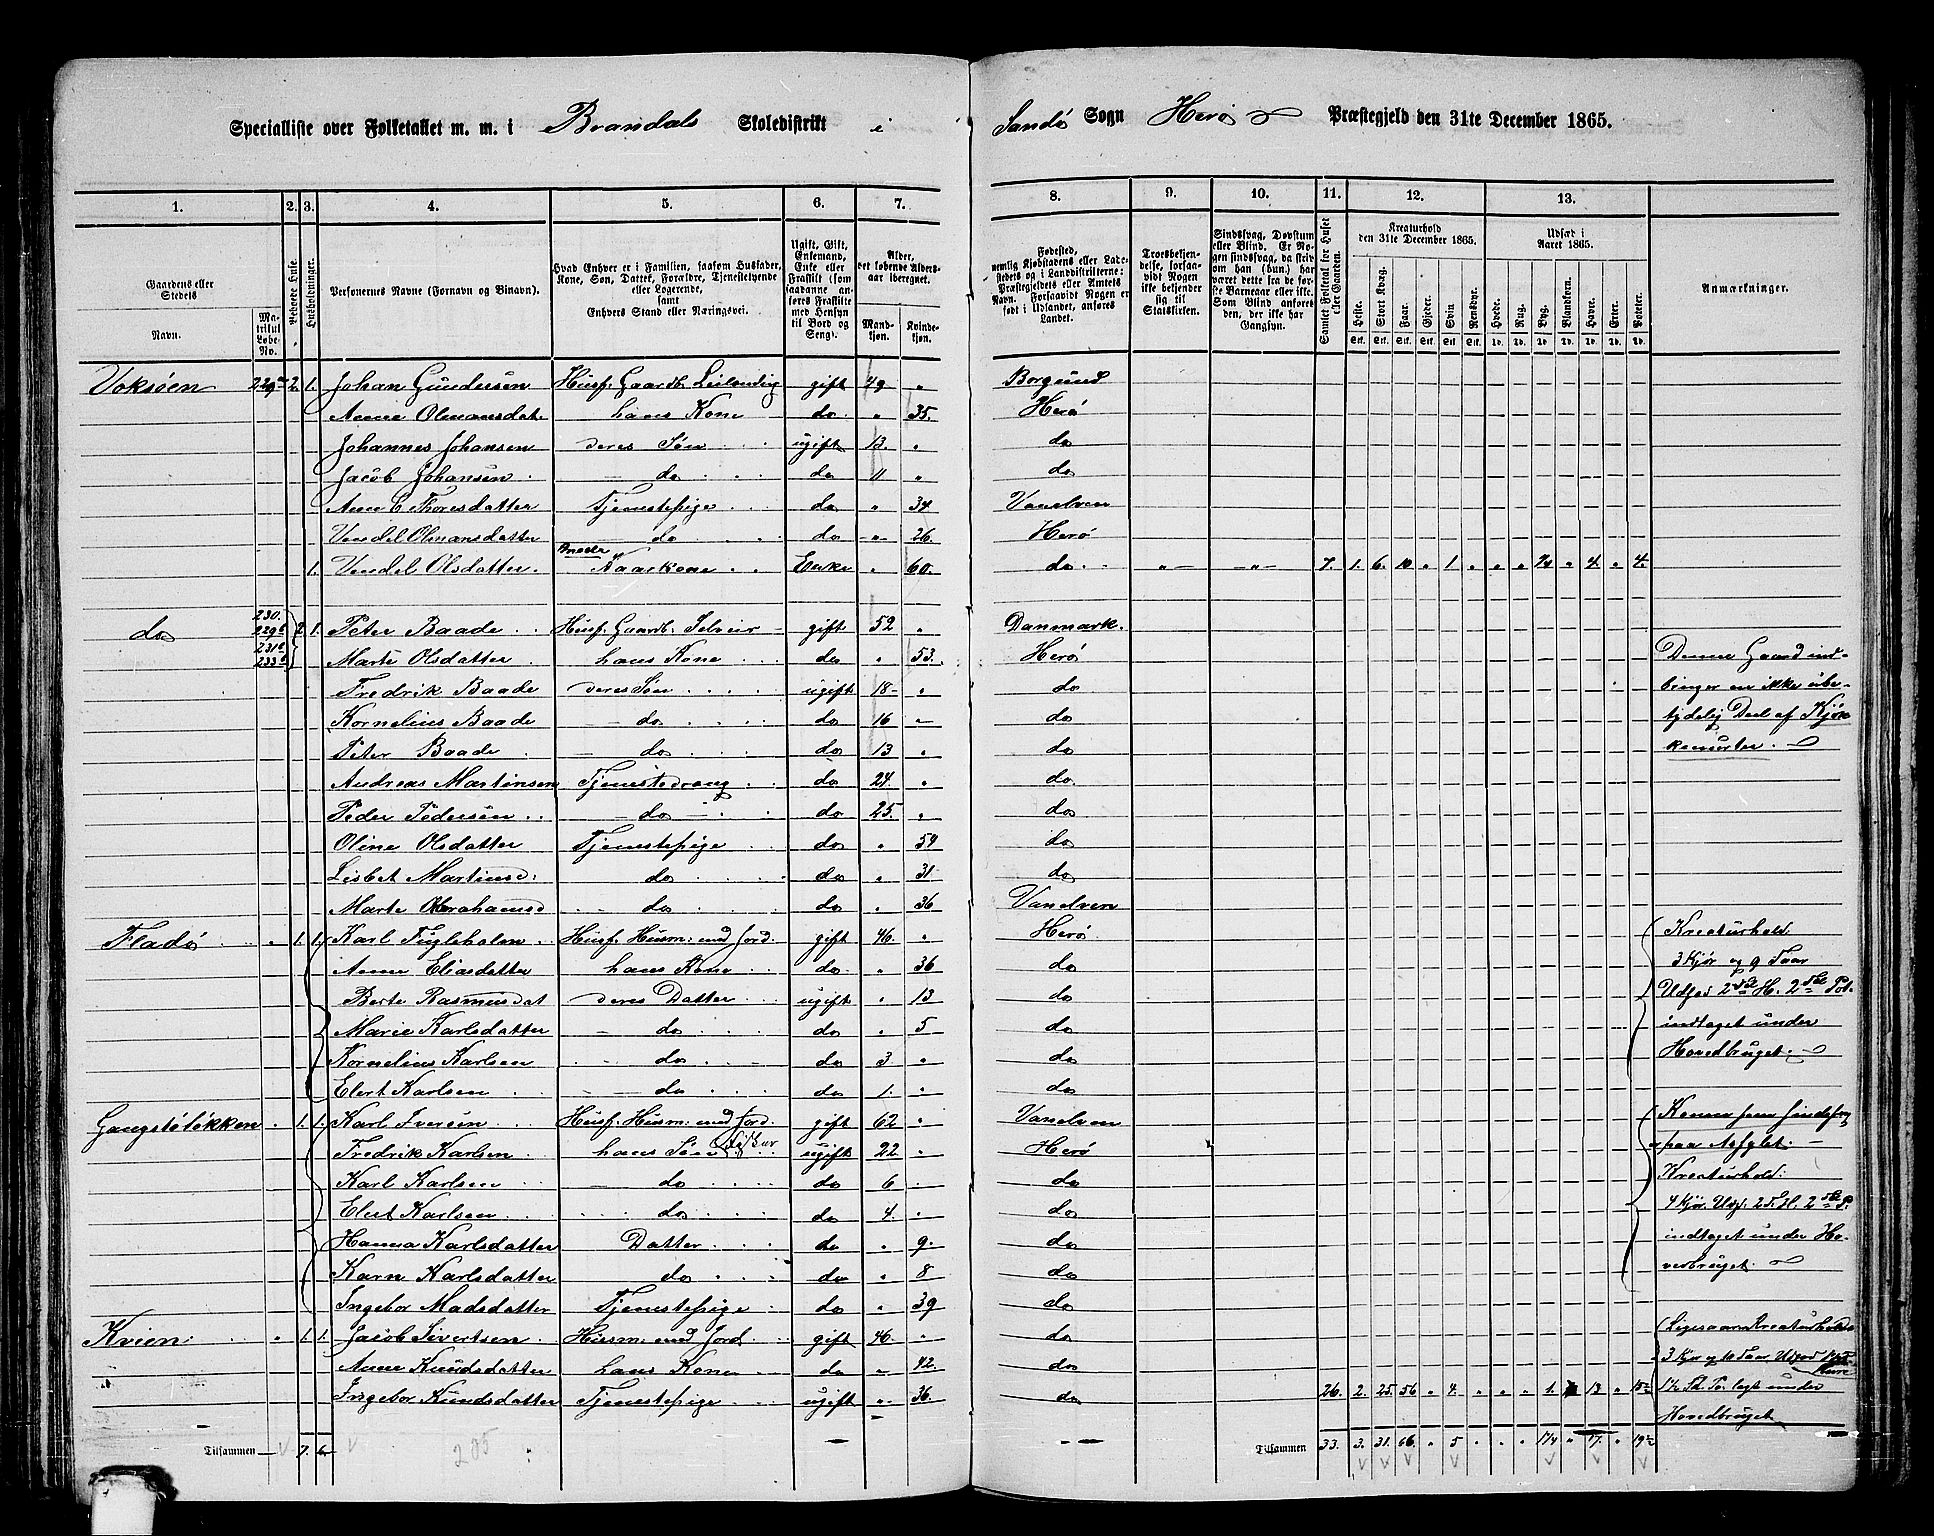 Specialliste over Folketallet m. m. i Brandals Skoledistrikt i Sandø Sogn Herø Præstegjeld den 31te December 1865.
1. 2. 3. 4. 5. 6. 7. 8. 9. 10. 11. 12. 13.
Gaardens eller Stedets
Navn.
Matrikul Løbe-No.
Beboede Huse.
Husholdninger.
Personernes Navne (Fornavn og Binavn).
Hvad Enhver er i Familien, saasom Husfader, Kone, Søn, Datter, Forældre, Tjenestetyende eller Logerende, samt Enhvers Stand eller Næringsvei.
Ugift, Gift, Enkemand, Enke eller Fraskilt (som saadanne anføres Fraskilte med Hensyn til Bord og Seng).
Alder, det løbende Alders-aar iberegnet.
Mandkjøn.
Kvindekjøn.
Fødested, nemlig Kjøbstadens eller Ladestedets og i Landdistrikterne: Præstegjeldets eller Amtets Navn. Forsaavidt Nogen er født i Udlandet, anføres Landet.
Troesbekjendelse, forsaavidt Nogen ikke bekjender sig til Statskirken.
Sindssvag, Døvstum eller Blind. Er Nogen sindssvag, da skriv om han (hun) har været dette fra de første Barneaar eller ikke. Som Blind anføres den, der ikke har Gangsyn.
Samlet Folketal for Huset eller Gaarden.
Kreaturhold den 31te December 1865.
Heste. Stort Kvæg. Faar. Gjeder. Svin. Rensdyr.
Udsæd i Aaret 1865.
Hvede. Rug. Byg. Blandkorn. Havre. Erter. Poteter.
Anmærkninger.
Voksøen 229 2. 1. Johan Gundersen Husf: Gaardb: Leilændig gift 49 " Borgund
Anne Olmansdat. hans Kone do " 35. Herø
Johannes Johansen deres Søn ugift 13. " do
Jacob Johansen do do 11 " do
Anne E Thoresdatter Tjenestepige do " 34 Vanelven
Vendel Olmansdatter do do " 26. Herø
1. Vendel Olsdatter. Kaarkone Enke " 60. do " " 7. 1. 6. 10 " 1. " " " " 4. " 4
do 230. 229b 231b 233b 2 1. Peter Baade Husf: Gaardb: Selveier gift 52 " Danmark.
Marte Olsdatter hans Kone do " 53. Herø
Fredrik Baade deres Søn ugift 18 " do
Kornelius Baade do do 16 " do
Peter Baade do do 13 " do
Andreas Martinsen Tjenestedreng do 24. " do
Peder Pedersen do do 25. " do
Oline Olsdatter Tjenestepige do " 59 do
Lisbet Martinsd: do do " 31. do
Marte Abrahamsd do do " 36 Vanelven
Denne Gaard indbringer en ikke ubetydelig Deel af
Fladø " 1. 1. Karl Fugleholm Husf: Husm: med Jord. gift 46. " Herø
Anne Eliasdatter hans Kone do " 36 do
Berte Rasmusdat deres Datter ugift " 13 do
Marie Karlsdatter do do " 5 do
Kornelius Karlsen do do 3 " do
Elert Karlsen do do 1. " do
Kreaturhold
3 Kjør og 9 Faar
Udsæd 2 H. 2 Pot.
indtaget under
Hovedbruget.
Gangstøløkken " 1. 1. Karl Iversen Husf: Husm: med Jord. gift 62 " Vanelven
Fredrik Karlsen hans Søn Fisker ugift 22 " Herø
Karl Karlsen do do 6 do
Elert Karlsen do do 4. " do
Hanna Karlsdatter Datter do " 9. do
Karn Karlsdatter do do " 8 do
Ingebor Madsdatter Tjenestepige do " 39 do
paa
Kreaturhold:
4 Kjør. Uds: 2 H. 2 P.
indtaget under Hovedbruget.
Kvien: " 1. 1. Jacob Sivertsen Husm: med Jord gift 46. " do
Anne Knudsdatter hans Kone do " 42. do
Ingebor Knudsdatter Tjenestepige ugift " 36. do 26. 2. 25. 56 " 4. " " " 1. 13 "
Ligesaa Kreaturhold:
3 Kjør og 10 Faar Udsæd Havre
lagt under
Hovedbruget
Tilsammen 7. 6 205
Tilsammen 33. 3. 31. 66. " 5 " " " 17. "